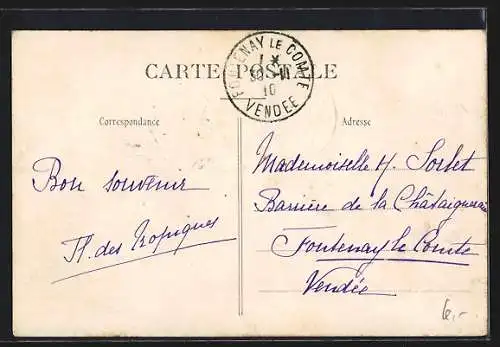 FONTENAY LE COMTE
1 *
30 - 11
10
VENDEE
CARTE POSTALE
Correspondance
Adresse
Bon souvenir
des Tropiques
Mademoiselle H. Sorlet
Barrière de la Châtaigneraie
Fontenay le Comte
Vendée
6,-